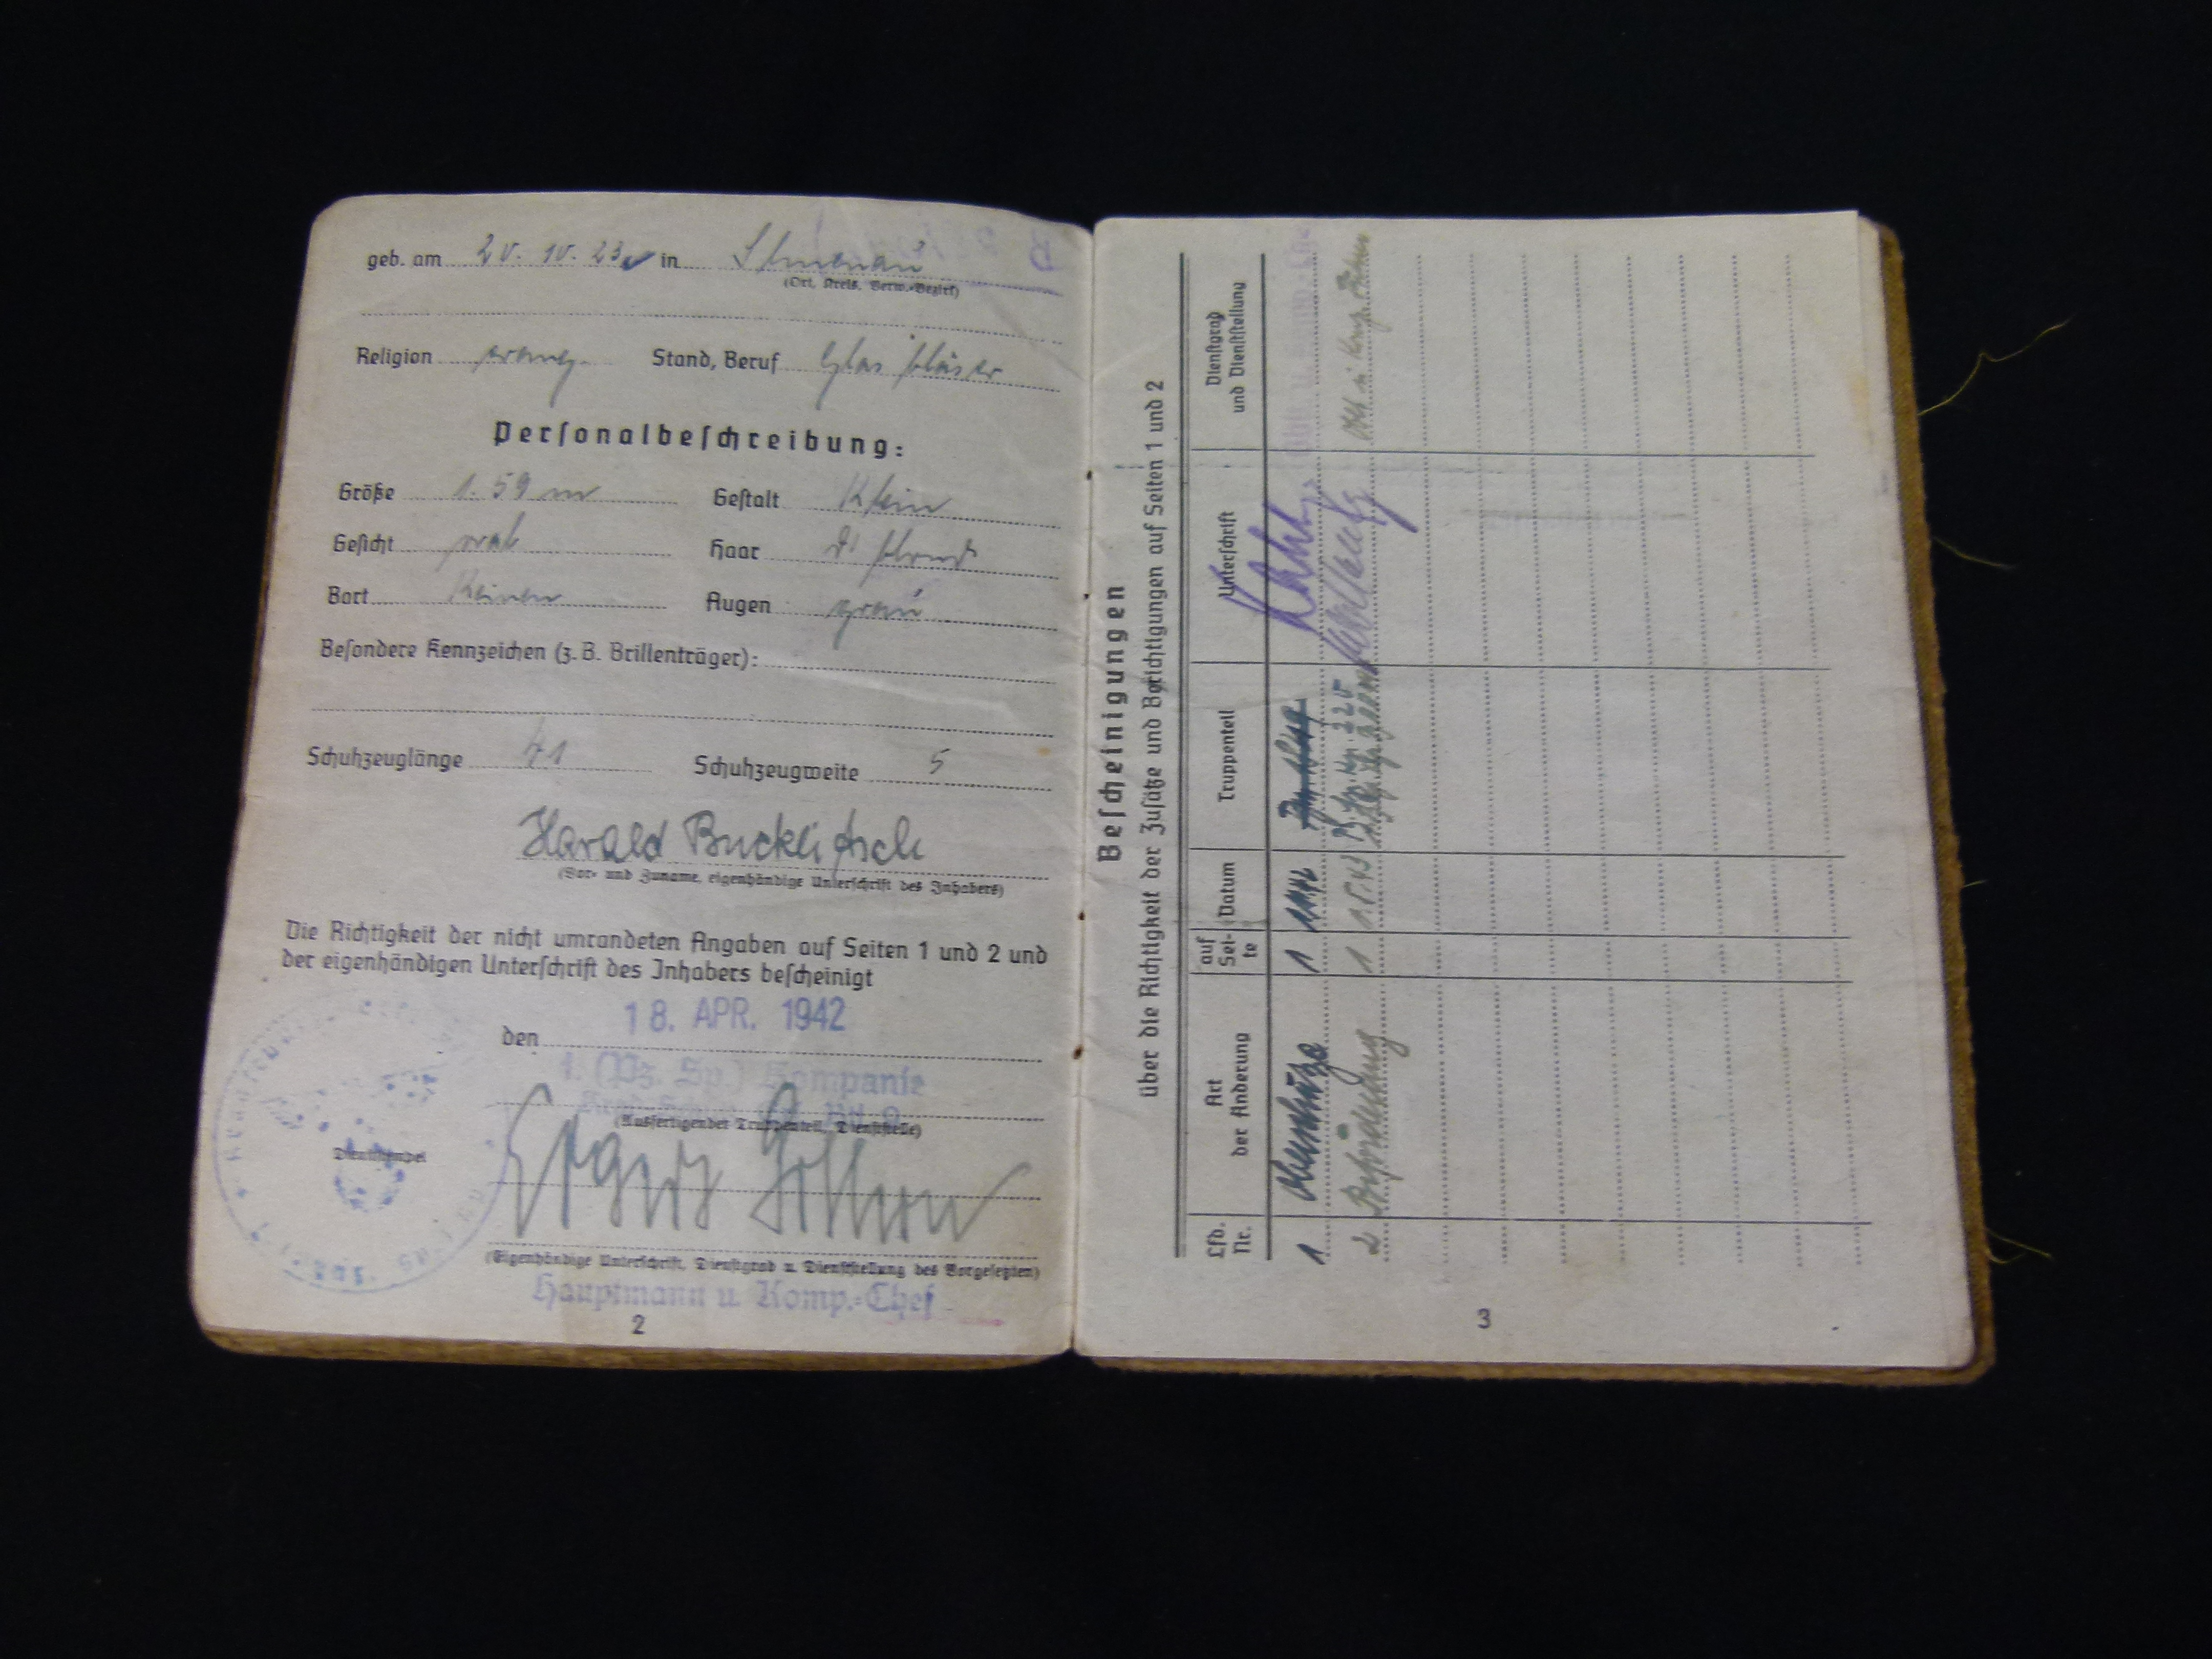 geb. am 20. 10. 23 in Ilmenau
(Ort, Kreis, Verw.-Bezirk)
Religion evang. Stand, Beruf Glasbläser
Personalbeschreibung:
Größe 1.59 m Gestalt Klein
Gesicht oval Haar d' blond
Bart Keinen Augen grau
Besondere Kennzeichen (z. B. Brillenträger):
Schuhzeuglänge 41 Schuhzeugweite 5
Harald
(Vor- und Zuname, eigenhändige Unterschrift des Inhabers)
Die Richtigkeit der nicht umrandeten Angaben auf Seiten 1 und 2 und
der eigenhändigen Unterschrift des Inhabers bescheinigt
den 18. APR. 1942
1. (Pz. Sp.) Kompanie
(Ausfertigender Truppenteil, Dienststelle)
Dienststempel
(Eigenhändige Unterschrift, Dienstgrad u. Dienststellung des Vorgesetzten)
Hauptmann u. Komp.-Chef
2
Bescheinigungen
über die Richtigkeit der Zusätze und Berichtigungen auf Seiten 1 und 2
Lfd. Nr. Art der Änderung auf Seite Datum Truppenteil Unterschrift Dienstgrad und Dienststellung
1 1
2 1 1.5.43
3